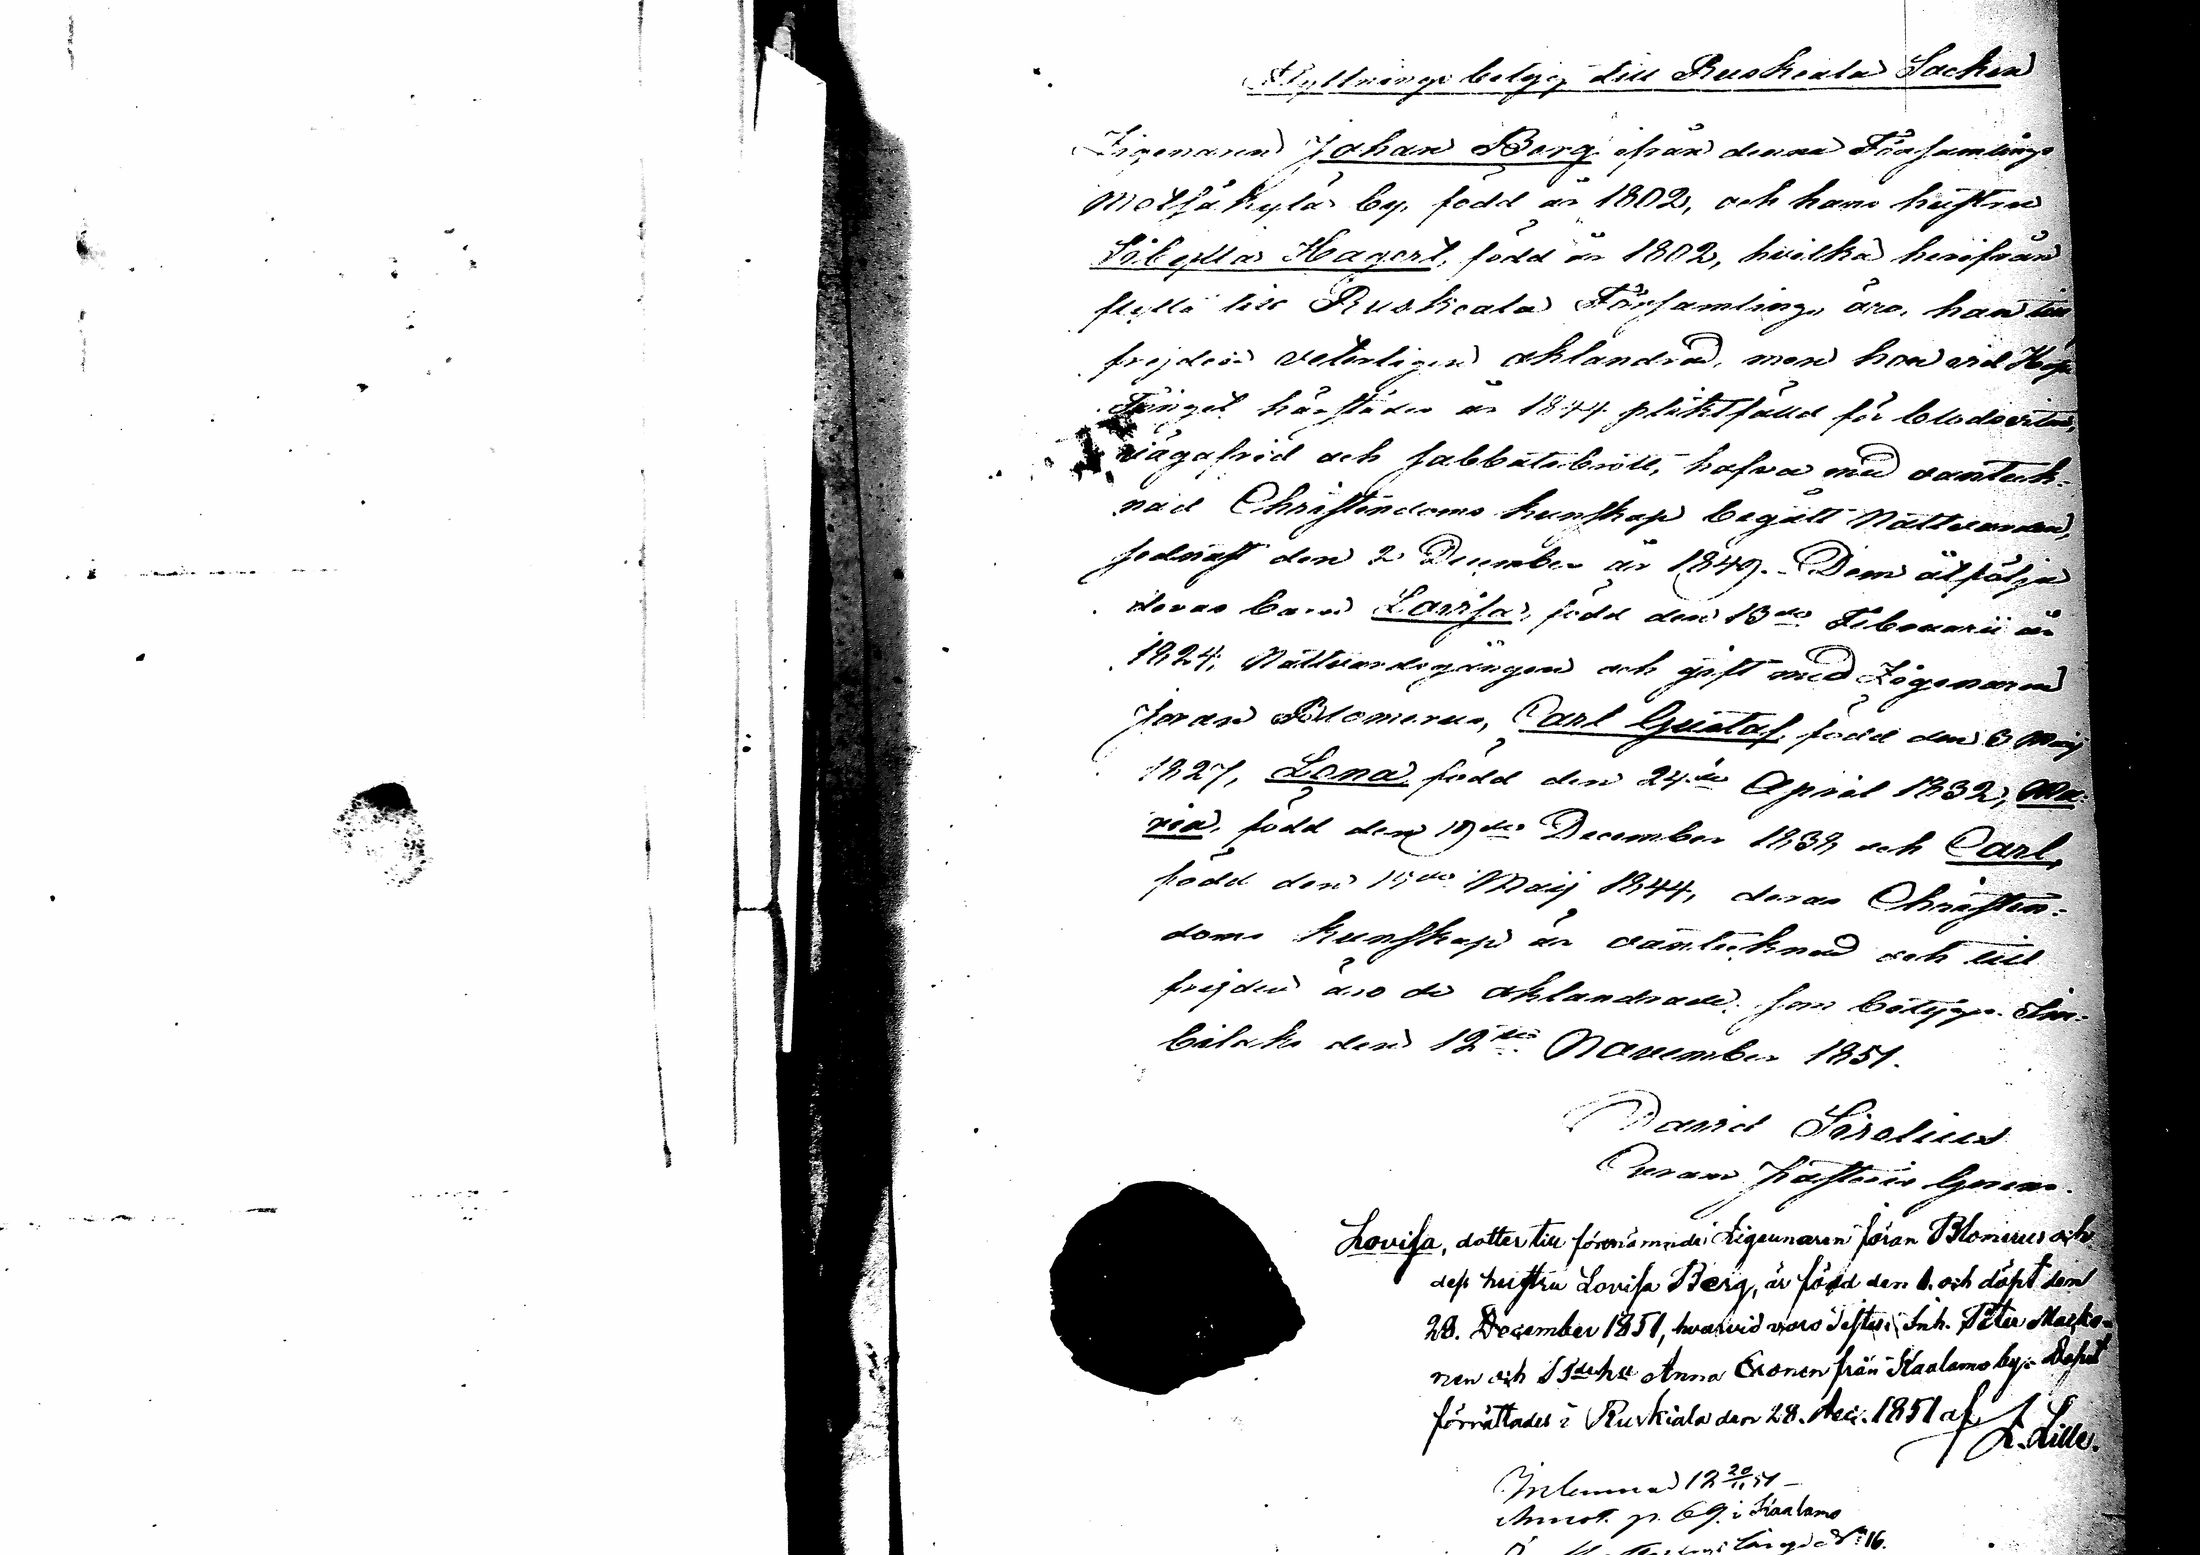 Flyttnings betyg till Ruskeala Socken
Zigenaren Johan Berg ifrån denna Församlings
Metsäkylä by, född år 1802, och hans hustru
Sibylla Hagert, född år 1802, hvilka härifrån
flytta till Ruskeala Församling, äro, han till
frejden veterligen oklandrad, men hon vid
Tinget härstädes år 1844 pliktfälld för blodvite,
vägafrid och sabbatsbrott, hafva med anteck-
nad Christendoms kunskap begått Nattvarden,
sednast den 2 December år 1849. Dem åtfölja
deras barn Lovisa, född den 13de Februarii år
1824, Nattvardsgången och gift med Zigenaren
Jöran Blomerus, Carl Gustaf, född den 3 Maij
1827, Lena född den 24de April 1832, Ma-
ria, född den 19de December 1838 och Carl,
född den 15de Maij 1844, deras Christen-
doms kunskap är antecknad och till
frejden äro de oklandrade, som betygar. Im-
bilaks den 12te November 1851.
David Sirelius
Curam Pastoris Gerens.
Lovisa, dotter till förenämnde Zigeunaren Jöran Blomerus och
dess hustru Lovisa Berg, är född den 1. och döpt den
28. December 1851, hvarvid voro testes: Inh. Peter Macko-
nen och Anna Eronen från Kaalamo by. Dopet
förrättades i Ruskiala den 28. Dec. 1851 af
L. Lille.
Inlemnad 12 20/11 51 –
Annot. p. 69. i Kaalamo
Nº 16.